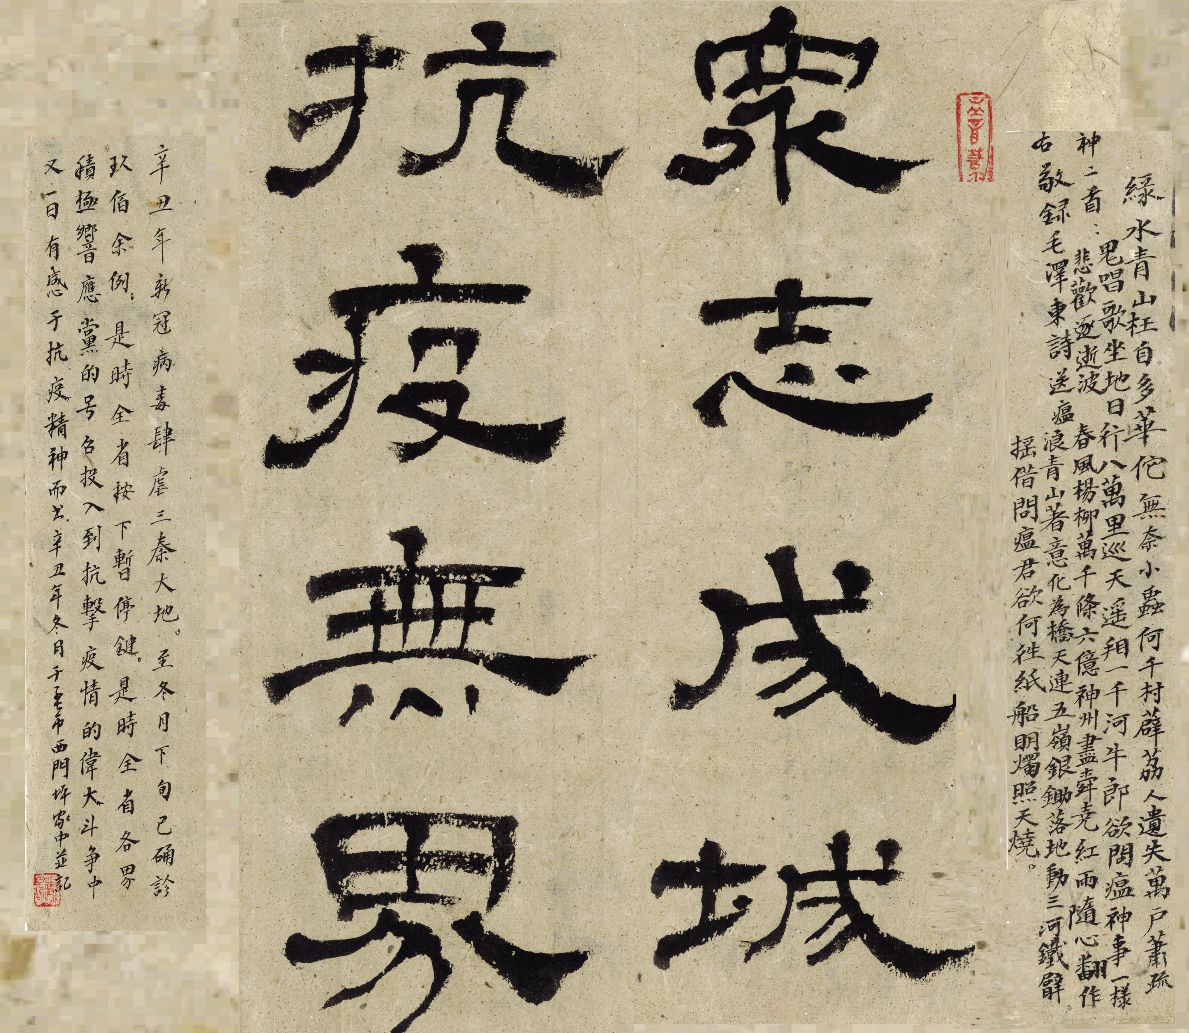 緑水青山枉自多華佗無奈小蟲何千村薜荔人遺失萬户蕭疏
鬼唱歌坐地日行八萬里巡天遥看一千河牛郎欲問瘟神事一樣
悲歡逐逝波 春風楊柳萬千條六億神州盡舜堯紅雨隨心翻作
浪青山著意化為橋天連五嶺銀鋤落地動三河鐵臂
摇借問瘟君欲何往紙船明燭照天燒。
右敬録毛澤東詩送瘟
神二首：
眾志成城
抗疫無界
辛丑年新冠病毒肆虐三秦大地。至冬月下旬已确診
玖佰余例。是時全省按下暫停鍵。是時全省各界
積極響應黨的号召投入到抗擊疫情的偉大斗争中
又一日有感于抗疫精神而书辛丑年冬月于西門坪家中並記